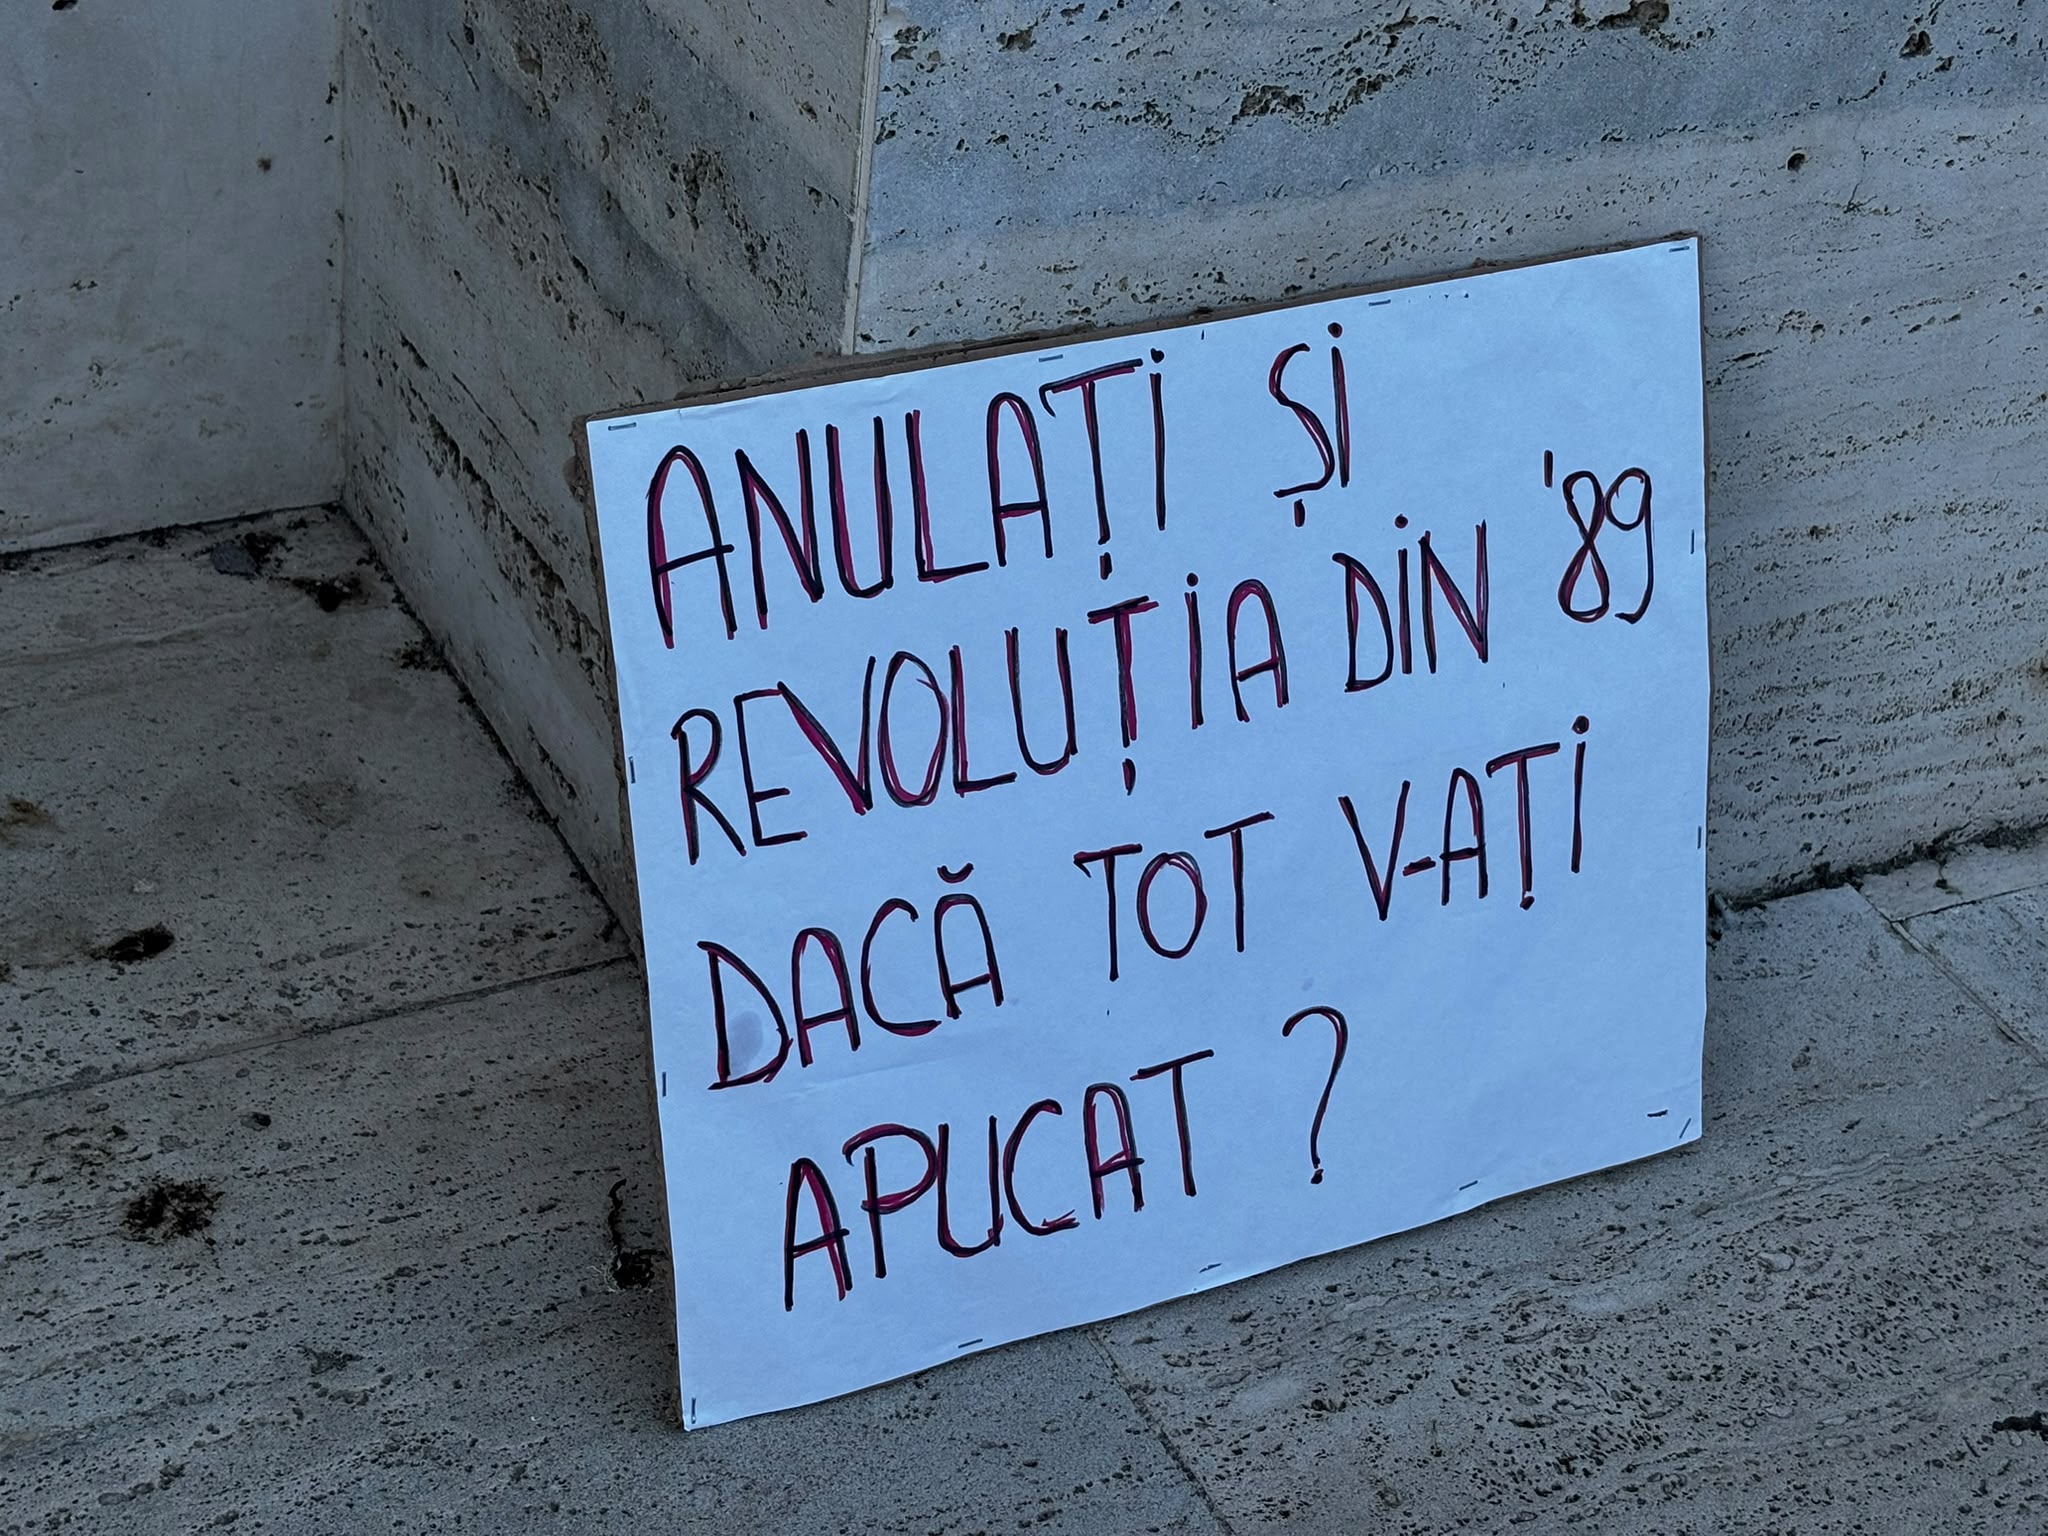 ANULAȚI ȘI
REVOLUȚIA DIN '89
DACĂ TOT V-AȚI
APUCAT ?